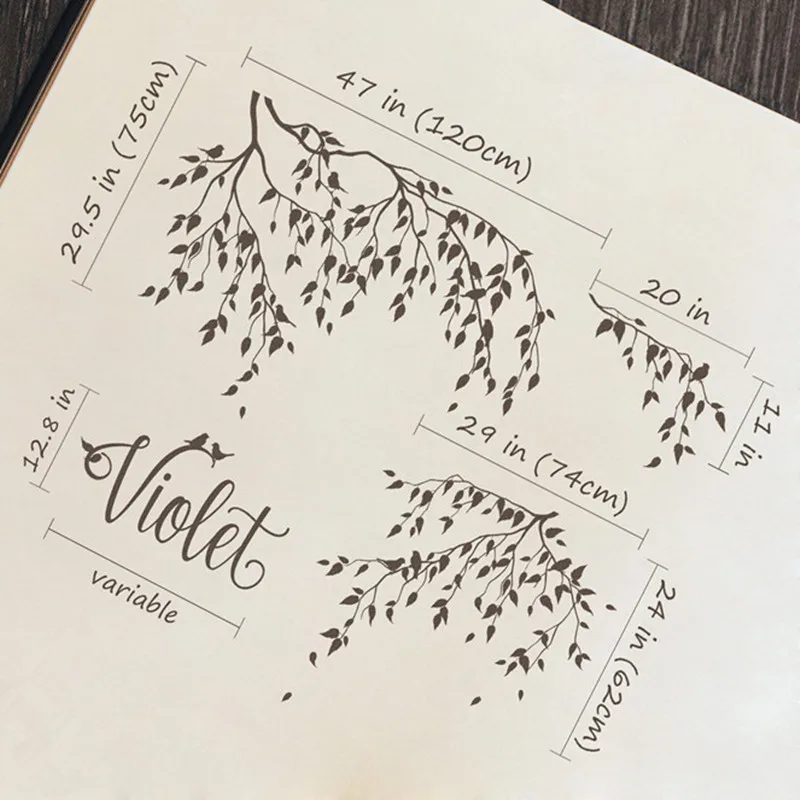 47 in (120cm)
29.5 in (75cm)
20 in
11 in
12.8 in
Violet
variable
29 in (74cm)
24 in (62cm)